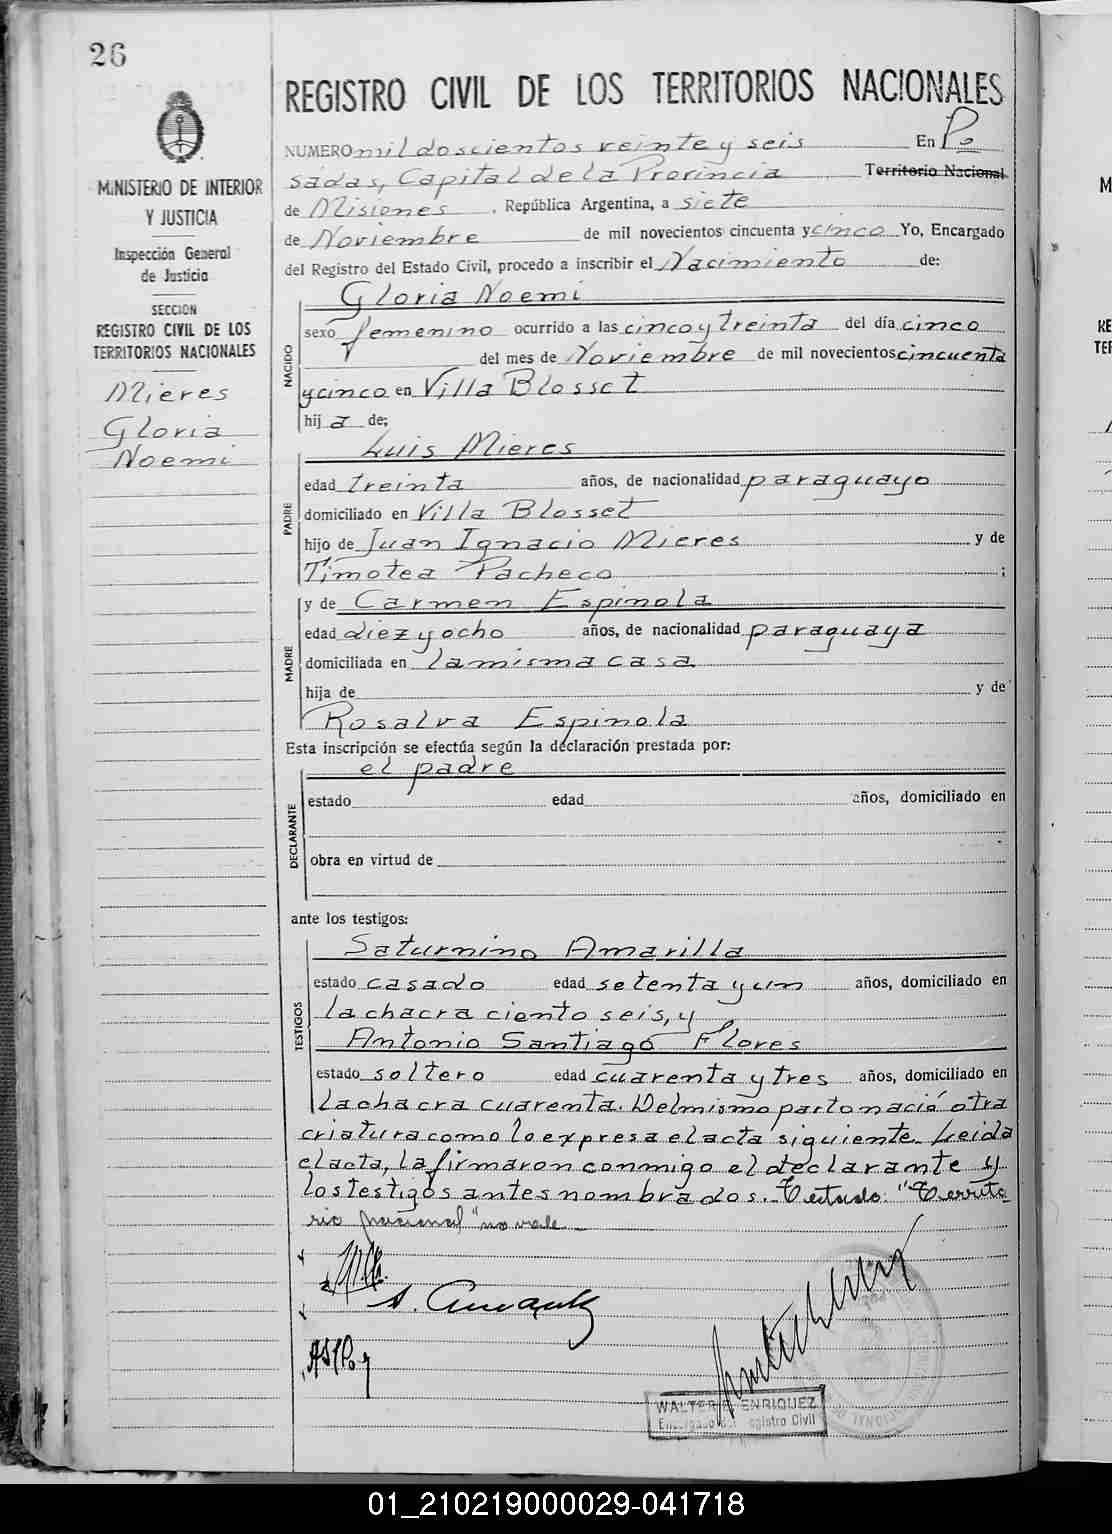 26
MINISTERIO DE INTERIOR
Y JUSTICIA
Inspección General
de Justicia
SECCION
REGISTRO CIVIL DE LOS
TERRITORIOS NACIONALES
Mieres
Gloria
Noemi
REGISTRO CIVIL DE LOS TERRITORIOS NACIONALES
NUMERO mil doscientos veinte y seis En Po
sadas, Capital de la Provincia Territorio Nacional
de Misiones, República Argentina, a siete
de Noviembre de mil novecientos cincuenta y cinco Yo, Encargado
del Registro del Estado Civil, procedo a inscribir el Nacimiento de:
NACIDO
Gloria Noemi
sexo femenino ocurrido a las cinco y treinta del día cinco
del mes de Noviembre de mil novecientos cincuenta
y cinco en Villa Blosset
hij a de;
PADRE
Luis Mieres
edad treinta años, de nacionalidad paraguayo
domiciliado en Villa Blosset
hijo de Juan Ignacio Mieres y de
Timotea Pacheco ;
MADRE
y de Carmen Espinola
edad diez y ocho años, de nacionalidad paraguaya
domiciliada en la misma casa
hija de y de
Rosalva Espinola
Esta inscripción se efectúa según la declaración prestada por:
DECLARANTE
el padre
estado edad años, domiciliado en
obra en virtud de
ante los testigos:
TESTIGOS
Saturnino Amarilla
estado casado edad setenta y un años, domiciliado en
la chacra ciento seis, y
Antonio Santiago Flores
estado soltero edad cuarenta y tres años, domiciliado en
la chacra cuarenta. Del mismo parto nació otra
criatura como lo expresa el acta siguiente. Leida
el acta, la firmaron conmigo el declarante y
los testigos antes nombrados. Testado: "Territo
rio nacional" no vale
WALTER ENRIQUEZ
Encargado del Registro Civil
01_210219000029-041718